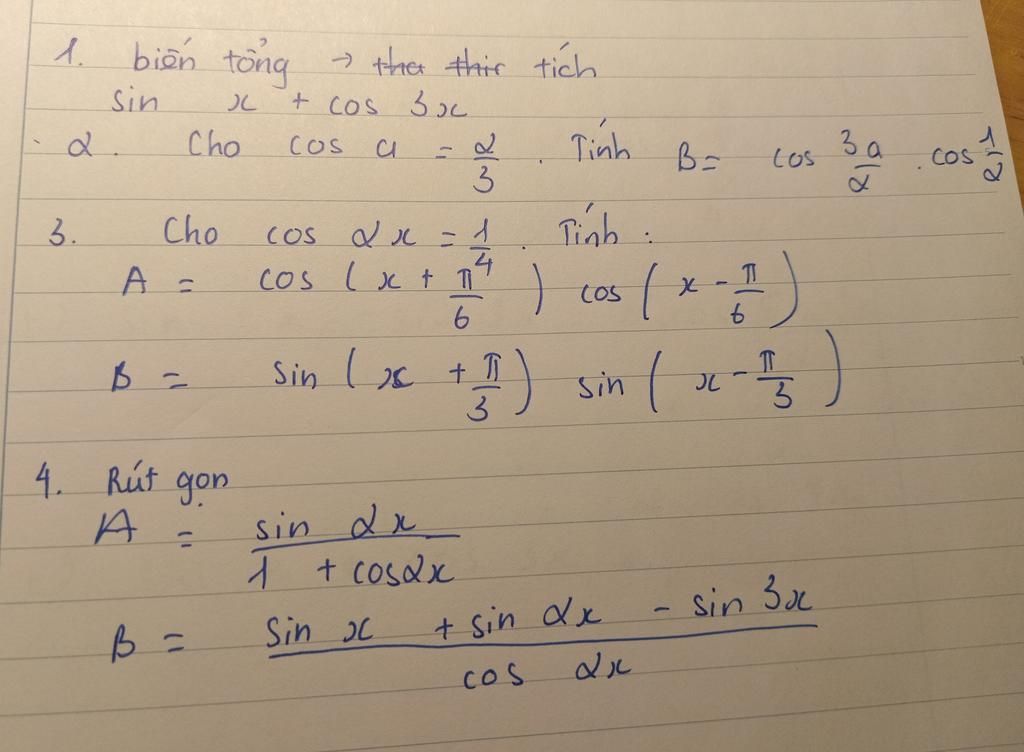 1. biến tổng → tích
sin x + cos 3x
2. Cho cos a = 2/3 . Tính B = cos 3a/2 . cos 1/2
3. Cho cos 2x = 1/4 . Tính :
A = cos ( x + π/6 ) cos ( x - π/6 )
B = sin ( x + π/3 ) sin ( x - π/3 )
4. Rút gọn
A = sin 2x / 1 + cos2x
B = sin x + sin 2x - sin 3x / cos 2x